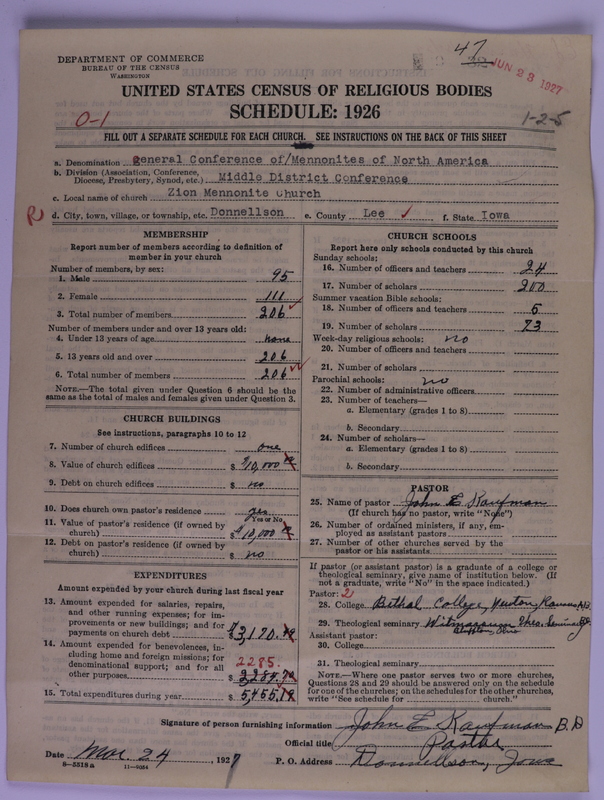 DEPARTMENT OF COMMERCE
BUREAU OF THE CENSUS
WASHINGTON
47
JUN 23 1927
UNITED STATES CENSUS OF RELIGIOUS BODIES
SCHEDULE: 1926
0-1
1-2-5
FILL OUT A SEPARATE SCHEDULE FOR EACH CHURCH. SEE INSTRUCTIONS ON THE BACK OF THIS SHEET
a. Denomination General Conference of/Mennonites of North America
b. Division (Association, Conference, Diocese, Presbytery, Synod, etc.) Middle District Conference
c. Local name of church Zion Mennonite Church
d. City, town, village, or township, etc. Donnellson e. County Lee ✓ f. State Iowa
MEMBERSHIP
Report number of members according to definition of
member in your church
Number of members, by sex:
1. Male 95
2. Female 111
3. Total number of members 206 ✓
Number of members under and over 13 years old:
4. Under 13 years of age none
5. 13 years old and over 206
6. Total number of members 206 ✓✓
NOTE.—The total given under Question 6 should be the
same as the total of males and females given under Question 3.
CHURCH BUILDINGS
See instructions, paragraphs 10 to 12
7. Number of church edifices one
8. Value of church edifices $ 10,000
9. Debt on church edifices $ no
10. Does church own pastor's residence yes
Yes or No
11. Value of pastor's residence (if owned by
church) $ 10,000
12. Debt on pastor's residence (if owned by
church) $ no
EXPENDITURES
Amount expended by your church during last fiscal year
13. Amount expended for salaries, repairs,
and other running expenses; for im-
provements or new buildings; and for
payments on church debt $ 3,170.
14. Amount expended for benevolences, in-
cluding home and foreign missions; for
denominational support; and for all
other purposes $ 2,284.
2285.
15. Total expenditures during year $ 5,455.
CHURCH SCHOOLS
Report here only schools conducted by this church
Sunday schools:
16. Number of officers and teachers 24
17. Number of scholars 200
Summer vacation Bible schools:
18. Number of officers and teachers 5
19. Number of scholars 73
Week-day religious schools: no
20. Number of officers and teachers
21. Number of scholars
Parochial schools: no
22. Number of administrative officers
23. Number of teachers—
a. Elementary (grades 1 to 8)
b. Secondary
24. Number of scholars—
a. Elementary (grades 1 to 8)
b. Secondary
PASTOR
25. Name of pastor John E Kaufman
(If church has no pastor, write "None")
26. Number of ordained ministers, if any, em-
ployed as assistant pastors
27. Number of other churches served by the
pastor or his assistants
If pastor (or assistant pastor) is a graduate of a college or
theological seminary, give name of institution below. (If
not a graduate, write "No" in the space indicated.)
Pastor: 2
28. College Bethal College, Newton, Kansas A.B.
29. Theological seminary Witmarsum Theo. Seminary
Bluffton, Ohio
Assistant pastor:
30. College
31. Theological seminary
NOTE.—Where one pastor serves two or more churches,
Questions 28 and 29 should be answered only on the schedule
for one of the churches; on the schedules for the other churches,
write "See schedule for church."
Signature of person furnishing information John E Kaufman B.D
Official title Pastor
Date Mar 24 , 1927 P. O. Address Donnellson, Iowa
8-5518a 11-9054